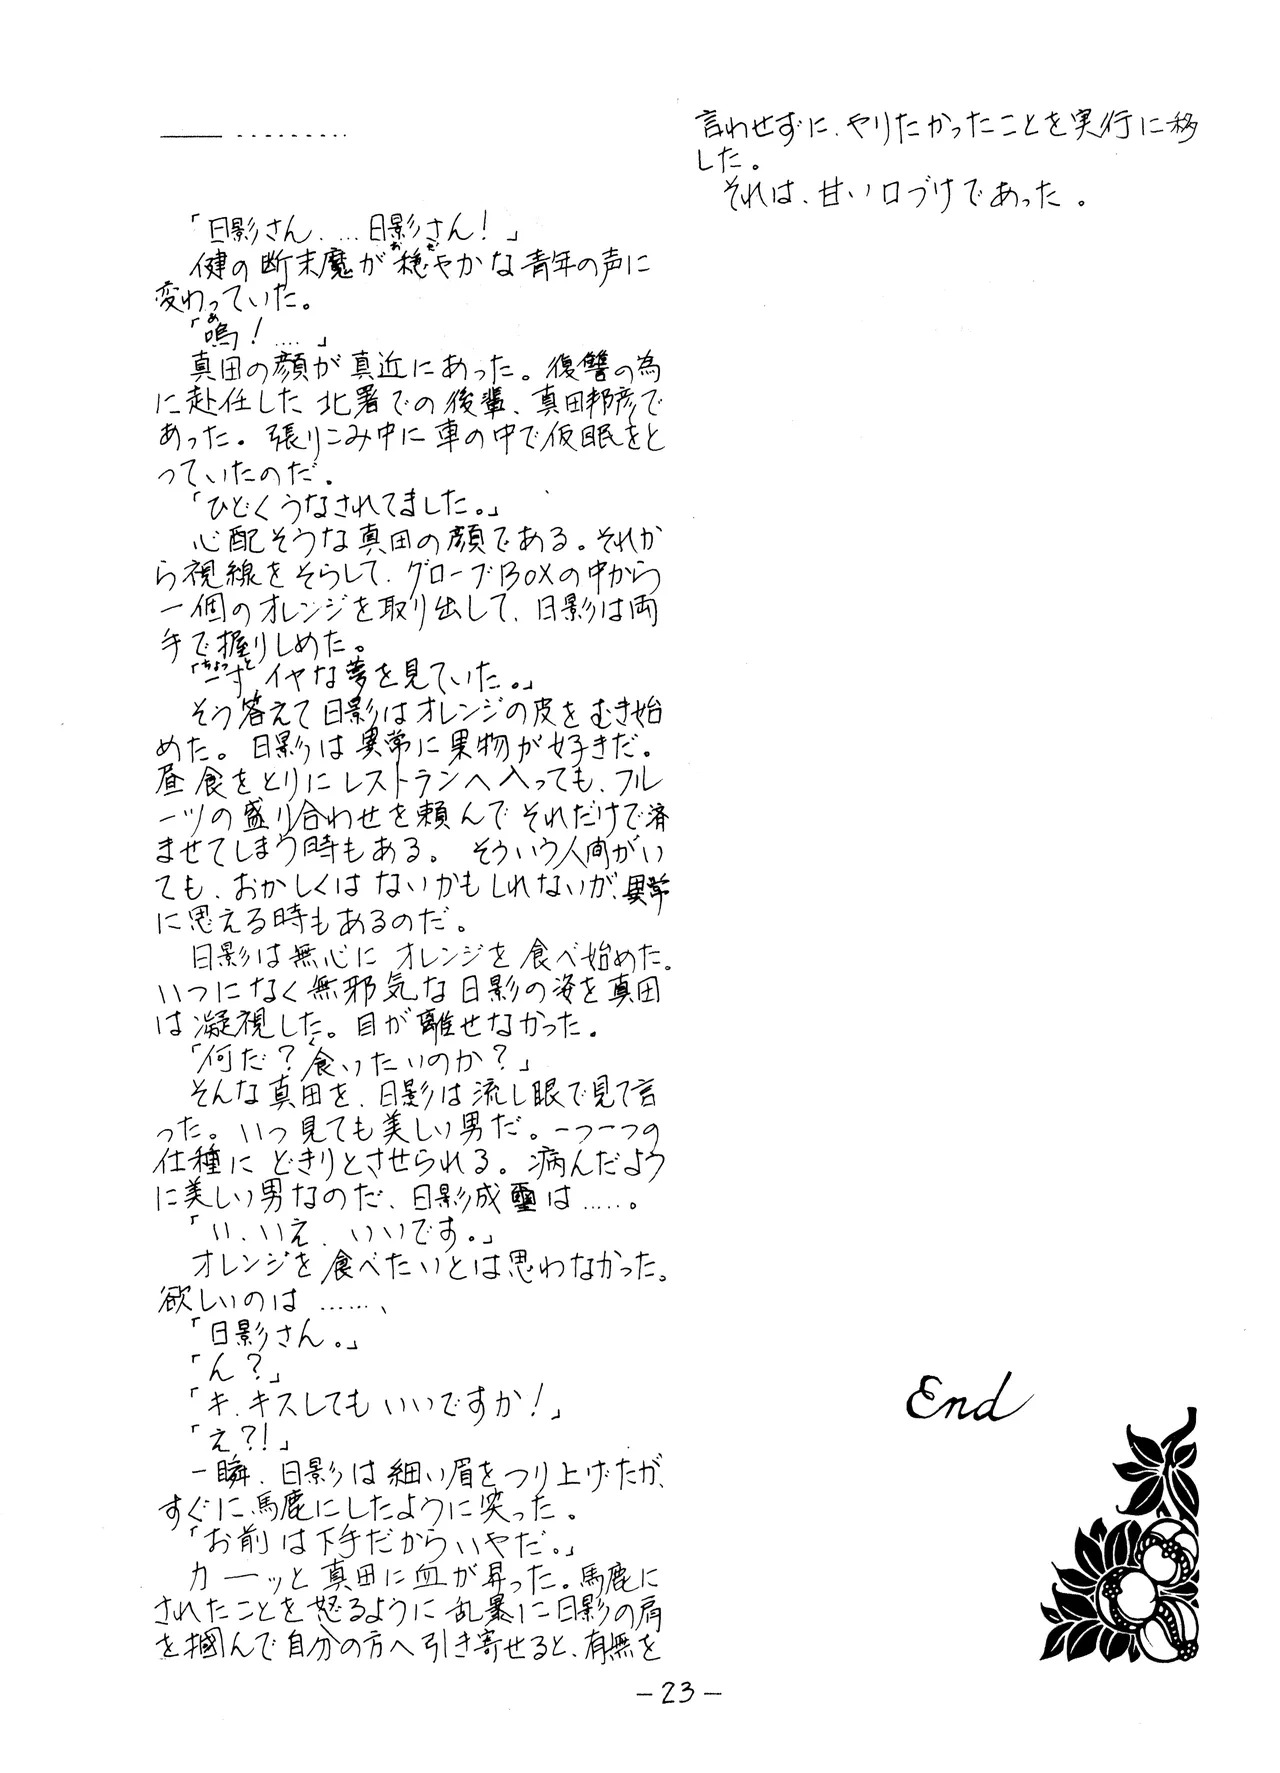 「日影さん、…日影さん！」
健の断末魔が穏やかな青年の声に
変わっていた。
「嗚！…」
真田の顔が真近にあった。復讐の為
に赴任した北署での後輩、真田邦彦で
あった。張りこみ中に車の中で仮眠をと
っていたのだ。
「ひどくうなされてました。」
心配そうな真田の顔である。それか
ら視線をそらして、グローブBOXの中から
一個のオレンジを取り出して、日影は両
手で握りしめた。
「一寸イヤな夢を見ていた。」
そう答えて日影はオレンジの皮をむき始
めた。日影は異常に果物が好きだ。
昼食をとりにレストランへ入っても、フル
ーツの盛り合わせを頼んでそれだけで済
ませてしまう時もある。そういう人間がい
ても、おかしくはないかもしれないが、異常
に思える時もあるのだ。
日影は無心にオレンジを食べ始めた。
いつになく無邪気な日影の姿を真田
は凝視した。目が離せなかった。
「何だ？食いたいのか？」
そんな真田を、日影は流し眼で見て言
った。いつ見ても美しい男だ。一つ一つの
仕種にどきりとさせられる。病んだよう
に美しい男なのだ、日影成璽は……。
「い、いえ、いいです。」
オレンジを食べたいとは思わなかった。
欲しいのは……、
「日影さん。」
「ん？」
「キ、キスしてもいいですか！」
「え?!」
一瞬、日影は細い眉をつり上げたが、
すぐに、馬鹿にしたように笑った。
「お前は下手だからいやだ。」
カーッと真田に血が昇った。馬鹿に
されたことを怒るように乱暴に日影の肩
を掴んで自分の方へ引き寄せると、有無を
言わせずに、やりたかったことを実行に移
した。
それは、甘い口づけであった。
End
-23-